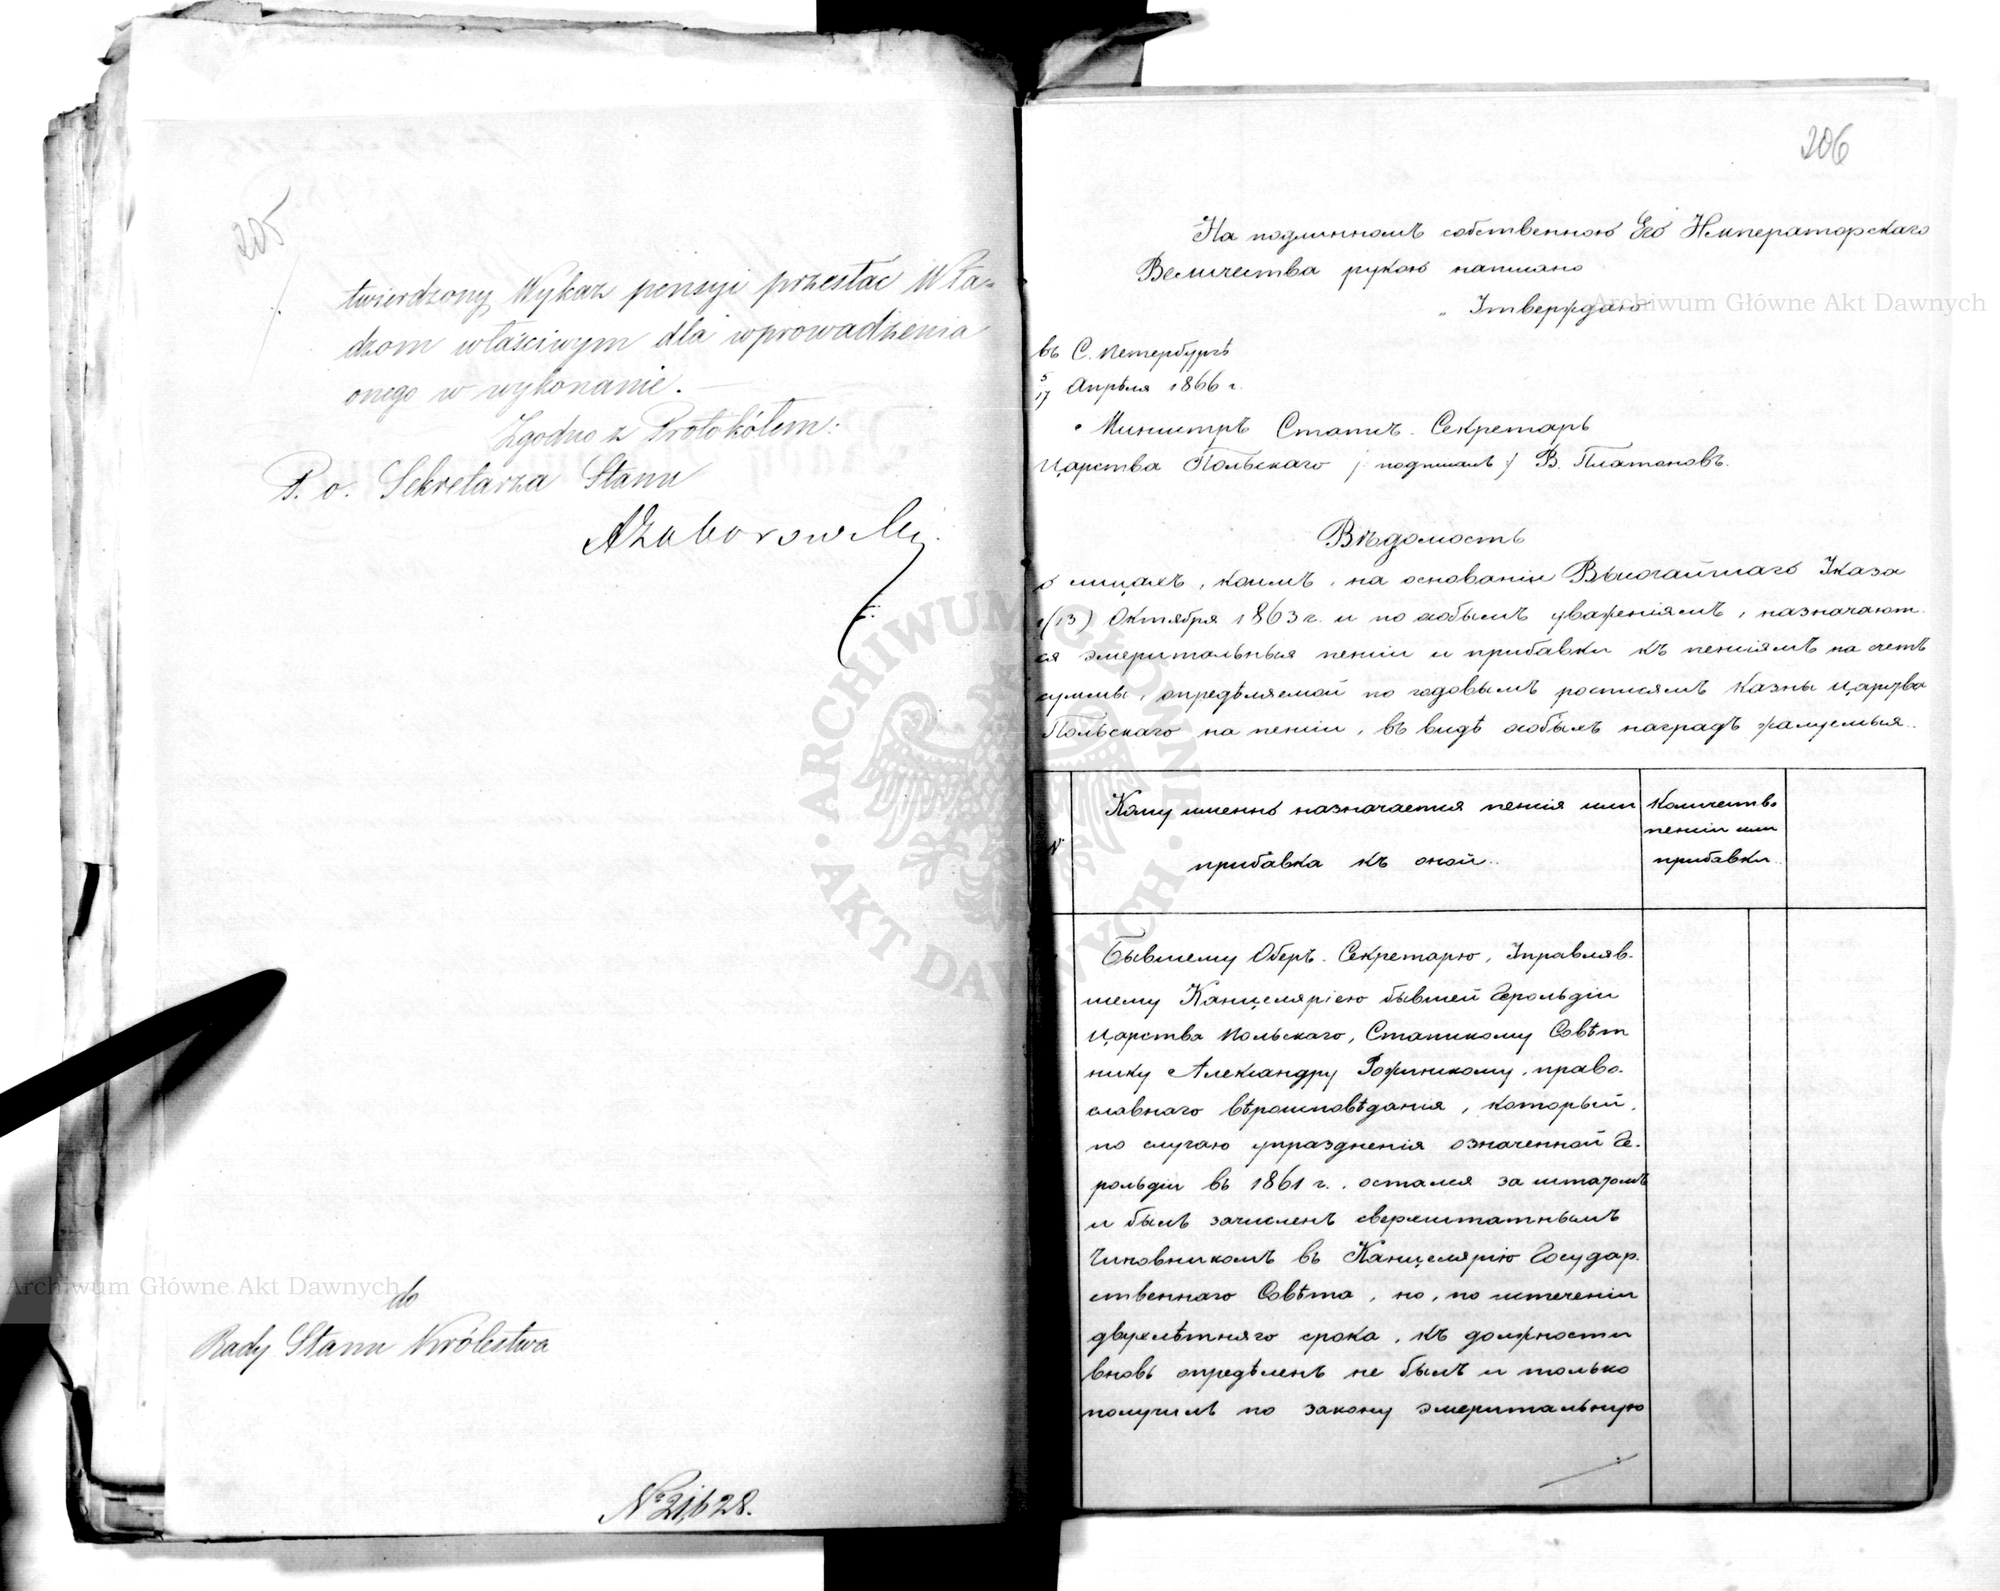 205
twierdzony Wykaz pensyi przesłać Wła-
dzom właściwym dla wprowadzenia
onego w wykonanie. —
Zgodno z Protokółem:
P. o. Sekretarza Stanu
AZaborowski
do
Rady Stanu Królestwa
№ 21,628.
206
На подлинномъ собственною Его Императорскаго
Величества рукою написано
„Утверждаю
въ С. Петербургѣ
5/17 Апрѣля 1866 г.
Министръ Статсъ-Секретарь
Царства Польскаго /: подписалъ :/ В. Платоновъ.
Вѣдомость
о лицахъ, коимъ, на основаніи Высочайшаго Указа
(13) Октября 1863 г. и по особымъ уваженіямъ, назначают-
ся эмеритальныя пенсіи и прибавки къ пенсіямъ на счетъ
суммы, опредѣляемой по годовымъ росписямъ Казны Царства
Польскаго на пенсіи, въ видѣ особыхъ наградъ жалуемыя.
№
Кому именно назначается пенсія или
прибавка къ оной.
Количество
пенсіи или
прибавки
Бывшему Оберъ-Секретарю, Управляв-
шему Канцеляріею бывшей Герольдіи
Царства Польскаго, Статскому Совѣт
нику Александру Рожинскому, право-
славнаго вѣроисповѣданія, который,
по случаю упраздненія означенной Ге-
рольдіи въ 1861 г., остался за штатомъ
и былъ зачисленъ сверхштатнымъ
Чиновникомъ въ Канцелярію Государ-
ственнаго Совѣта, но, по истеченіи
двухлѣтняго срока, къ должности
вновь опредѣленъ не былъ и только
получилъ по закону эмеритальную
Archiwum Główne Akt Dawnych
Archiwum Główne Akt Dawnych
ARCHIWUM GŁÓWNE AKT DAWNYCH